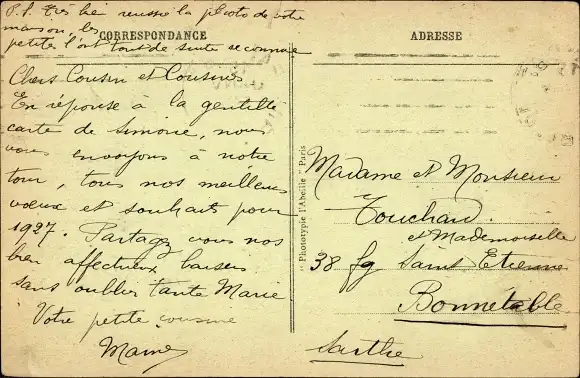 P.S. très bien reussie la photo de votre
maison, les
petites l'ont tout de suite reconnue
CORRESPONDANCE
Chers Cousin et Cousines
En réponse à la gentille
carte de Simone, nous
vous envoyons à notre
tour, tous nos meilleurs
vœux et souhaits pour
1927. Partagez vous nos
bien affectueux baisers
sans oublier tante Marie
Votre petite cousine
"Phototypie l'Abeille" Paris
ADRESSE
Madame et Monsieur
Touchard
et Mademoiselle
38 fg Saint Etienne
Bonnétable
Sarthe